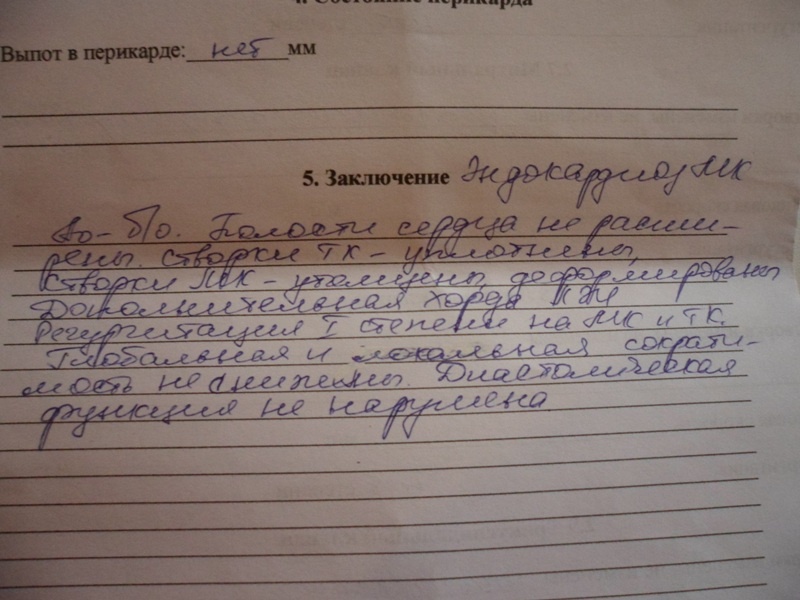 4. Состояние перикарда
Выпот в перикарде: нет мм
5. Заключение Эндокардиоз МК
Ао- б/о. Полости сердца не расши-
рены. створки ТК - уплотнены,
Створки МК - утолщены, деформированы
Дополнительная хорда ЛЖ
Регургитация I степени на МК и ТК.
Глобальная и локальная сократи-
мость не снижены. Диастолическая
функция не нарушена